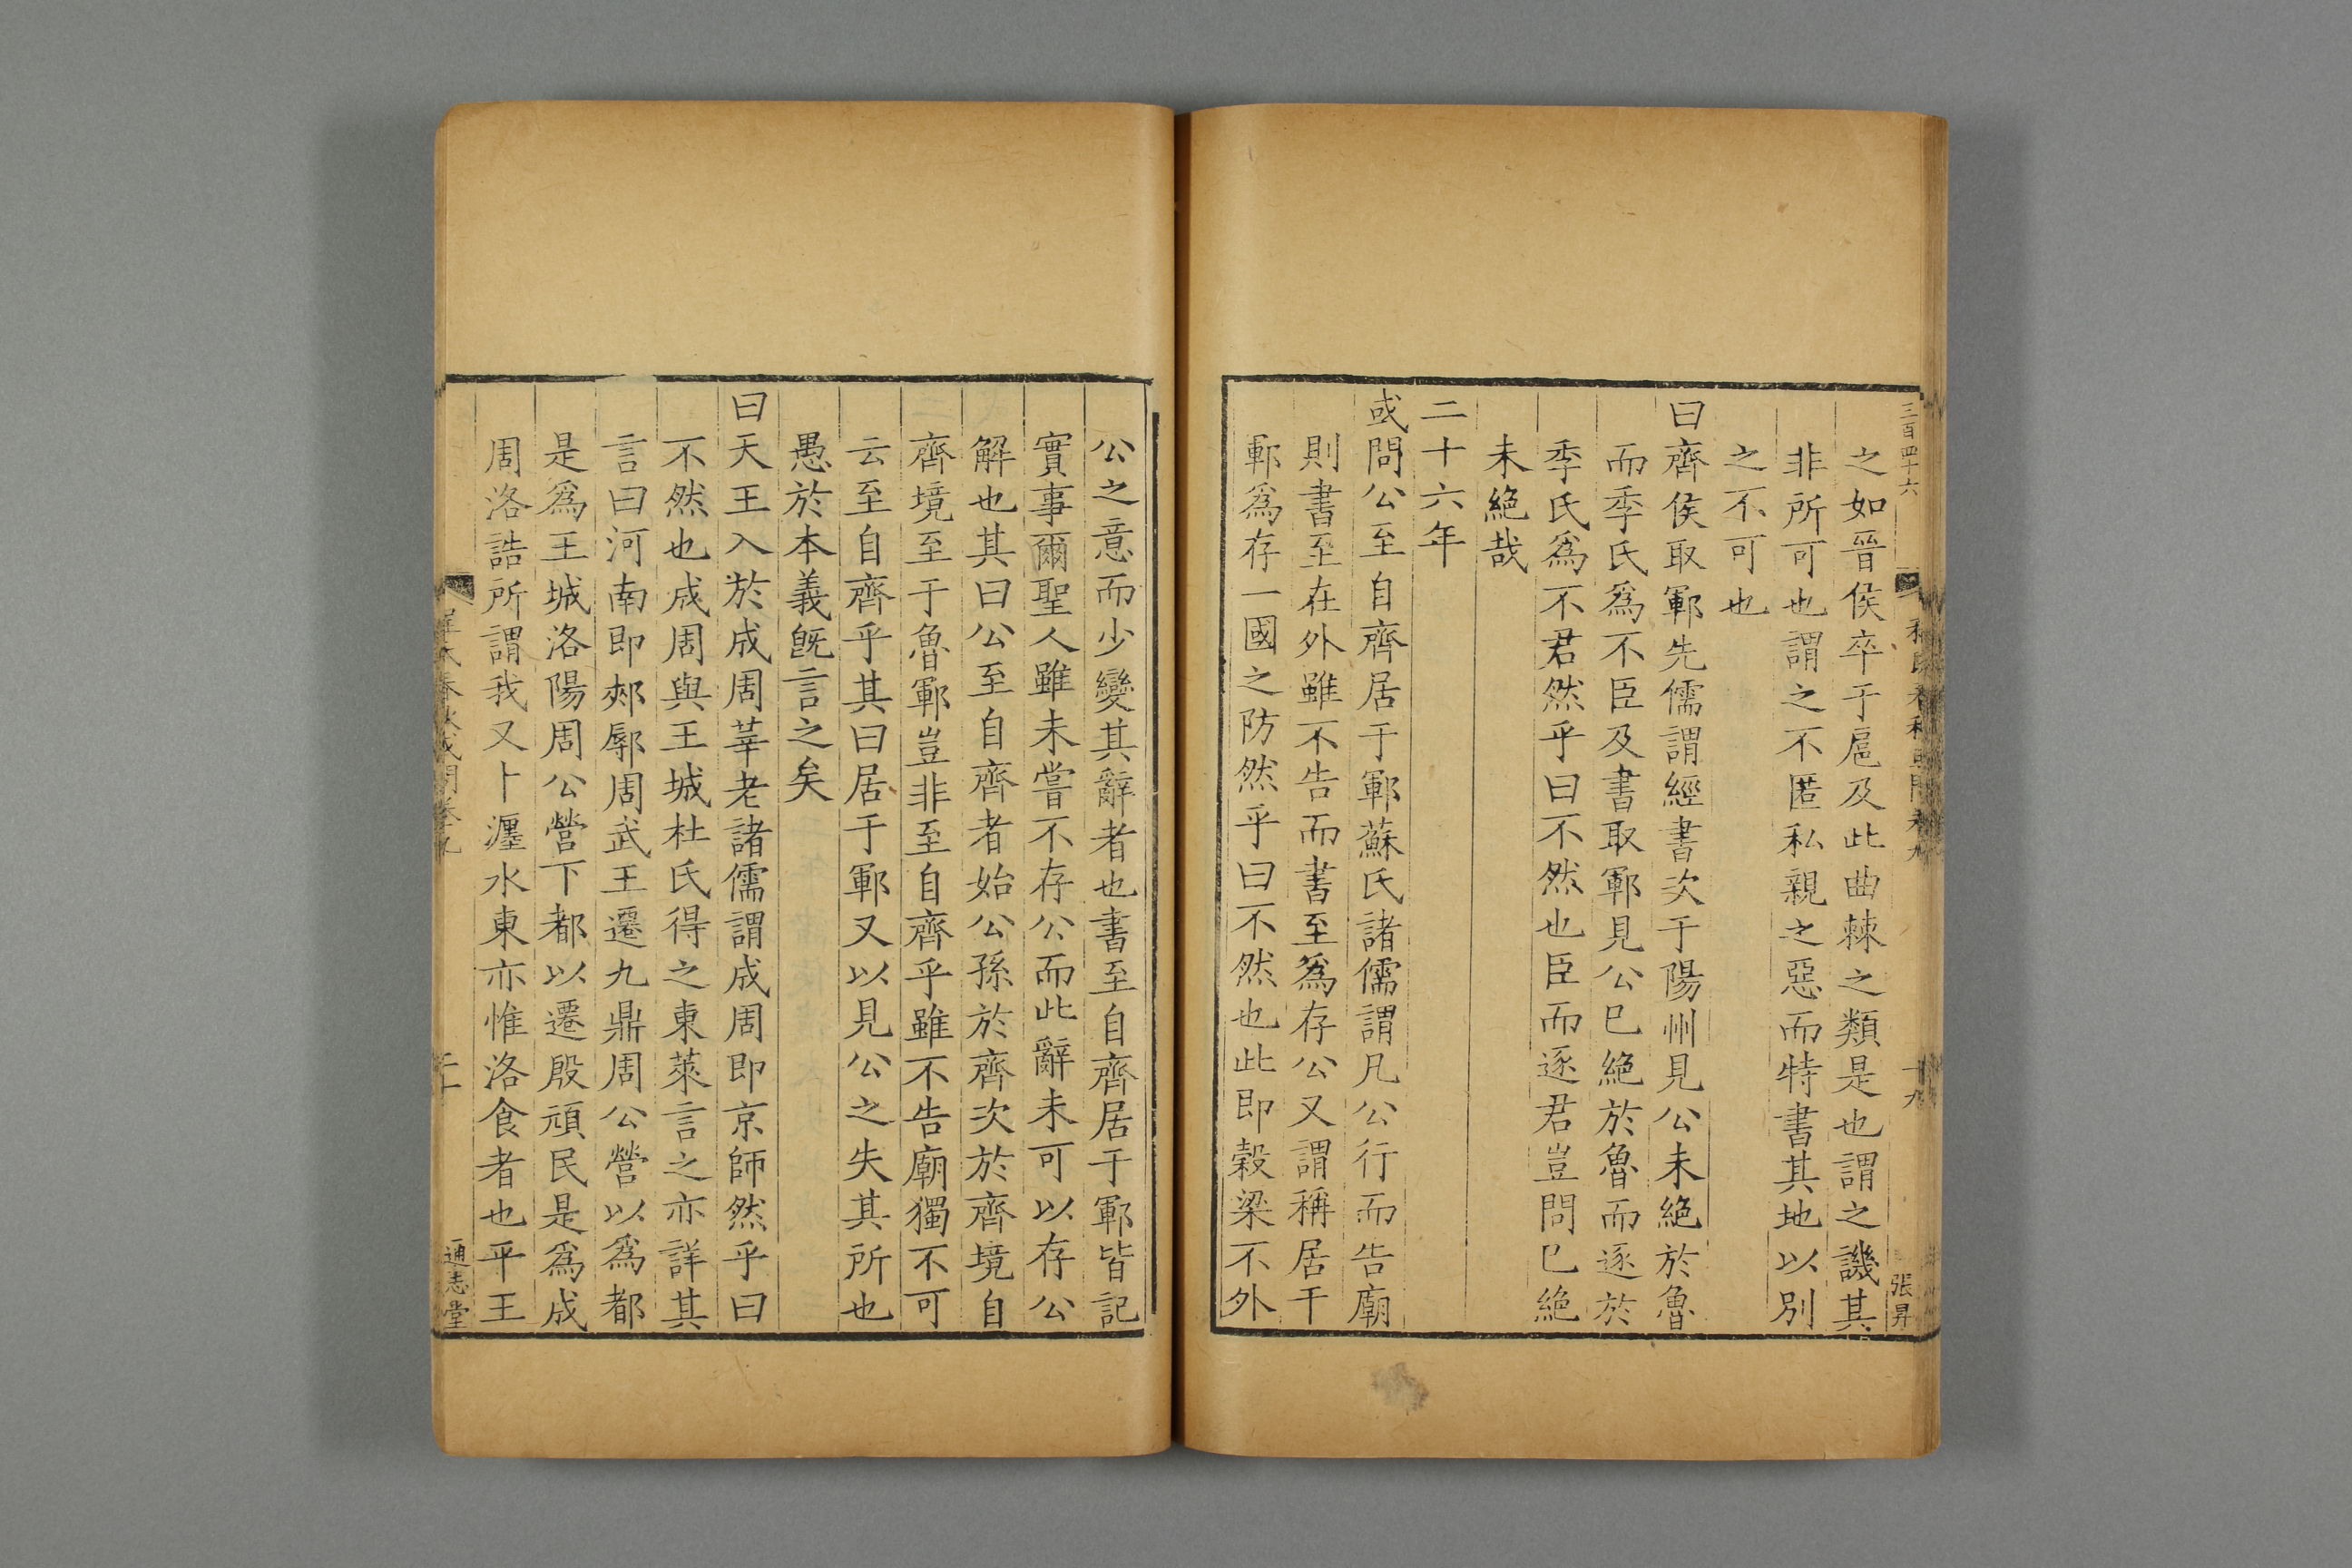 三百四十六
十九
張昇
之如晉侯卒于扈及此曲棘之類是也謂之譏其
非所可也謂之不匿私親之惡而特書其地以別
之不可也
曰齊侯取鄆先儒謂經書次于陽州見公未絕於魯
而季氏爲不臣及書取鄆見公已絕於魯而逐於
季氏爲不君然乎曰不然也臣而逐君豈問已絕
未絕哉
二十六年
或問公至自齊居于鄆蘇氏諸儒謂凡公行而告廟
則書至在外雖不告而書至爲存公又謂稱居于
鄆爲存一國之防然乎曰不然也此即穀梁不外
公之意而少變其辭者也書至自齊居于鄆皆記
實事爾聖人雖未嘗不存公而此辭未可以存公
解也其曰公至自齊者始公孫於齊次於齊境自
齊境至于魯鄆豈非至自齊乎雖不告廟獨不可
云至自齊乎其曰居于鄆又以見公之失其所也
愚於本義旣言之矣
曰天王入於成周莘老諸儒謂成周即京師然乎曰
不然也成周與王城杜氏得之東萊言之亦詳其
言曰河南即郟鄏周武王遷九鼎周公營以爲都
是爲王城洛陽周公營下都以遷殷頑民是爲成
周洛誥所謂我又卜瀍水東亦惟洛食者也平王
通志堂